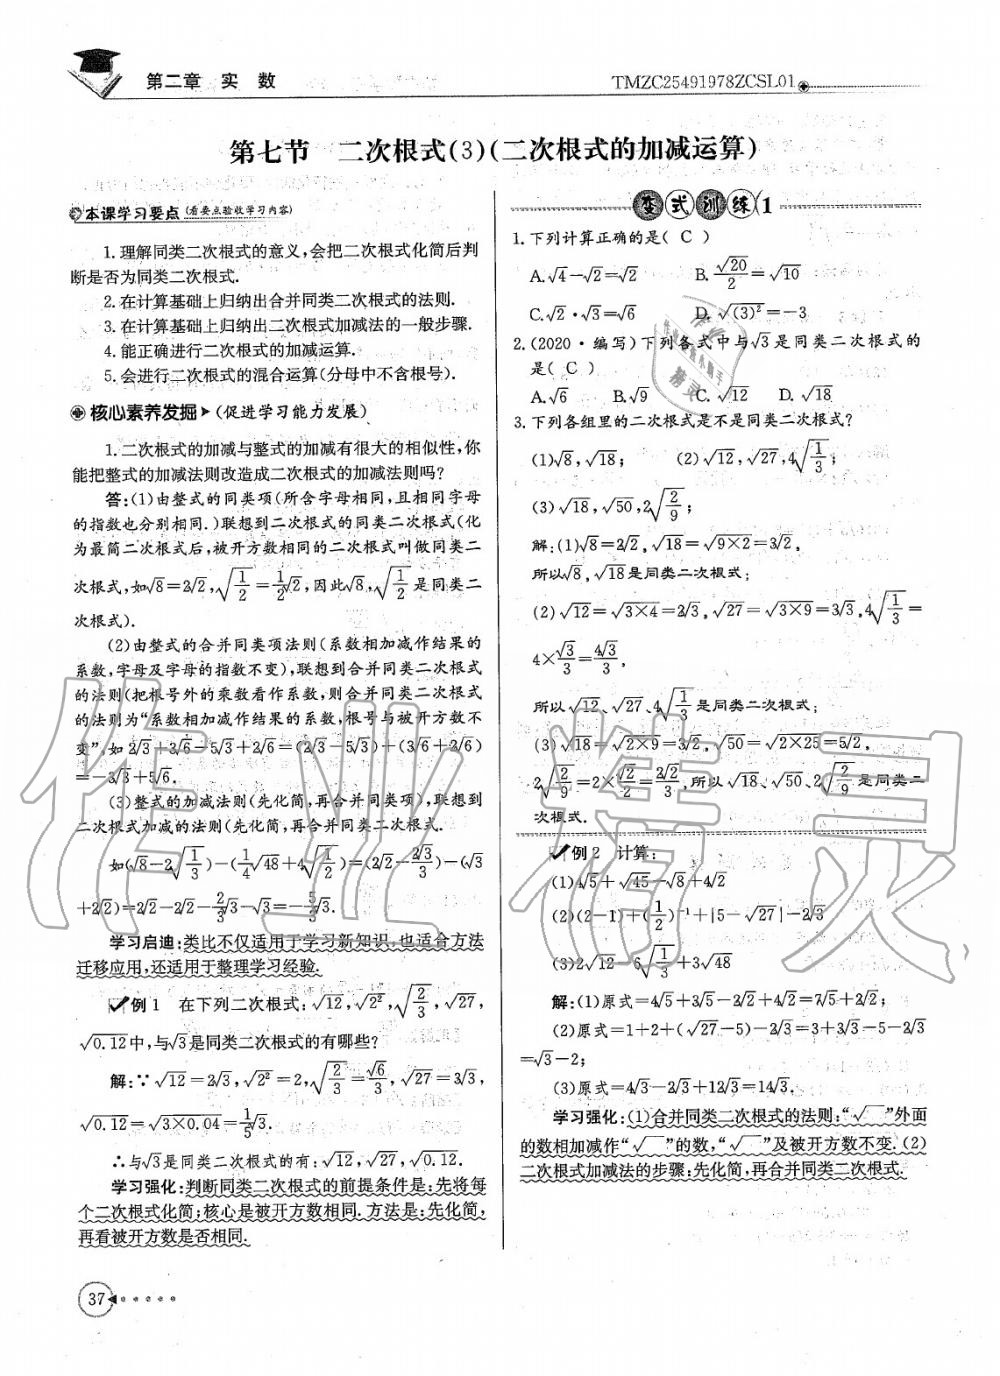 第二章 实 数
TMZC25491978ZCSL01
第七节 二次根式(3)(二次根式的加减运算)
本课学习要点(看要点验收学习内容)
1.理解同类二次根式的意义,会把二次根式化简后判
断是否为同类二次根式.
2.在计算基础上归纳出合并同类二次根式的法则.
3.在计算基础上归纳出二次根式加减法的一般步骤.
4.能正确进行二次根式的加减运算.
5.会进行二次根式的混合运算(分母中不含根号).
核心素养发掘(促进学习能力发展)
1.二次根式的加减与整式的加减有很大的相似性,你
能把整式的加减法则改造成二次根式的加减法则吗?
答:(1)由整式的同类项(所含字母相同,且相同字母
的指数也分别相同.)联想到二次根式的同类二次根式(化
为最简二次根式后,被开方数相同的二次根式叫做同类二
次根式,如√8=2√2,√(1/2)=1/2√2,因此√8,√(1/2)是同类二
次根式).
(2)由整式的合并同类项法则(系数相加减作结果的
系数,字母及字母的指数不变),联想到合并同类二次根式
的法则(把根号外的乘数看作系数,则合并同类二次根式
的法则为“系数相加减作结果的系数,根号与被开方数不
变”,如2√3+3√6-5√3+2√6=(2√3-5√3)+(3√6+2√6)
=-3√3+5√6.
(3)整式的加减法则(先化简,再合并同类项),联想到
二次根式加减的法则(先化简,再合并同类二次根式.
如(√8-2√(1/3))-(1/4√48+4√(1/2))=(2√2-2√3/3)-(√3
+2√2)=2√2-2√2-2/3√3-√3=-5/3√3.
学习启迪:类比不仅适用于学习新知识,也适合方法
迁移应用,还适用于整理学习经验.
例1 在下列二次根式:√12,√2²,√(2/3),√27,
√0.12中,与√3是同类二次根式的有哪些?
解:∵√12=2√3,√2²=2,√(2/3)=√6/3,√27=3√3,
√0.12=√3×0.04=1/5√3.
∴与√3是同类二次根式的有:√12,√27,√0.12.
学习强化:判断同类二次根式的前提条件是:先将每
个二次根式化简;核心是被开方数相同.方法是:先化简,
再看被开方数是否相同.
变式训练1
1.下列计算正确的是( C )
A.√4-√2=√2 B.√20/2=√10
C.√2·√3=√6 D.√(3)²=-3
2.(2020·编写)下列各式中与√3是同类二次根式的
是( C )
A.√6 B.√9 C.√12 D.√18
3.下列各组里的二次根式是不是同类二次根式?
(1)√8,√18; (2)√12,√27,4√(1/3);
(3)√18,√50,2√(2/9);
解:(1)√8=2√2,√18=√9×2=3√2,
所以√8,√18是同类二次根式;
(2)√12=√3×4=2√3,√27=√3×9=3√3,4√(1/3)=
4×√3/3=4√3/3,
所以√12、√27、4√(1/3)是同类二次根式;
(3)√18=√2×9=3√2,√50=√2×25=5√2,
2√(2/9)=2×√2/2=2√2/3,所以√18、√50、2√(2/9)是同类二
次根式.
例2 计算:
(1)4√5+√45-√8+4√2
(2)(2-1)+(1/2)⁻¹+|5-√27|-2√3
(3)2√12-6√(1/3)+3√48
解:(1)原式=4√5+3√5-2√2+4√2=7√5+2√2;
(2)原式=1+2+(√27-5)-2√3=3+3√3-5-2√3
=√3-2;
(3)原式=4√3-2√3+12√3=14√3.
学习强化:(1)合并同类二次根式的法则:“√ ”外面
的数相加减作“√ ”的数,“√ ”及被开方数不变.(2)
二次根式加减法的步骤:先化简,再合并同类二次根式.
37
作业精灵